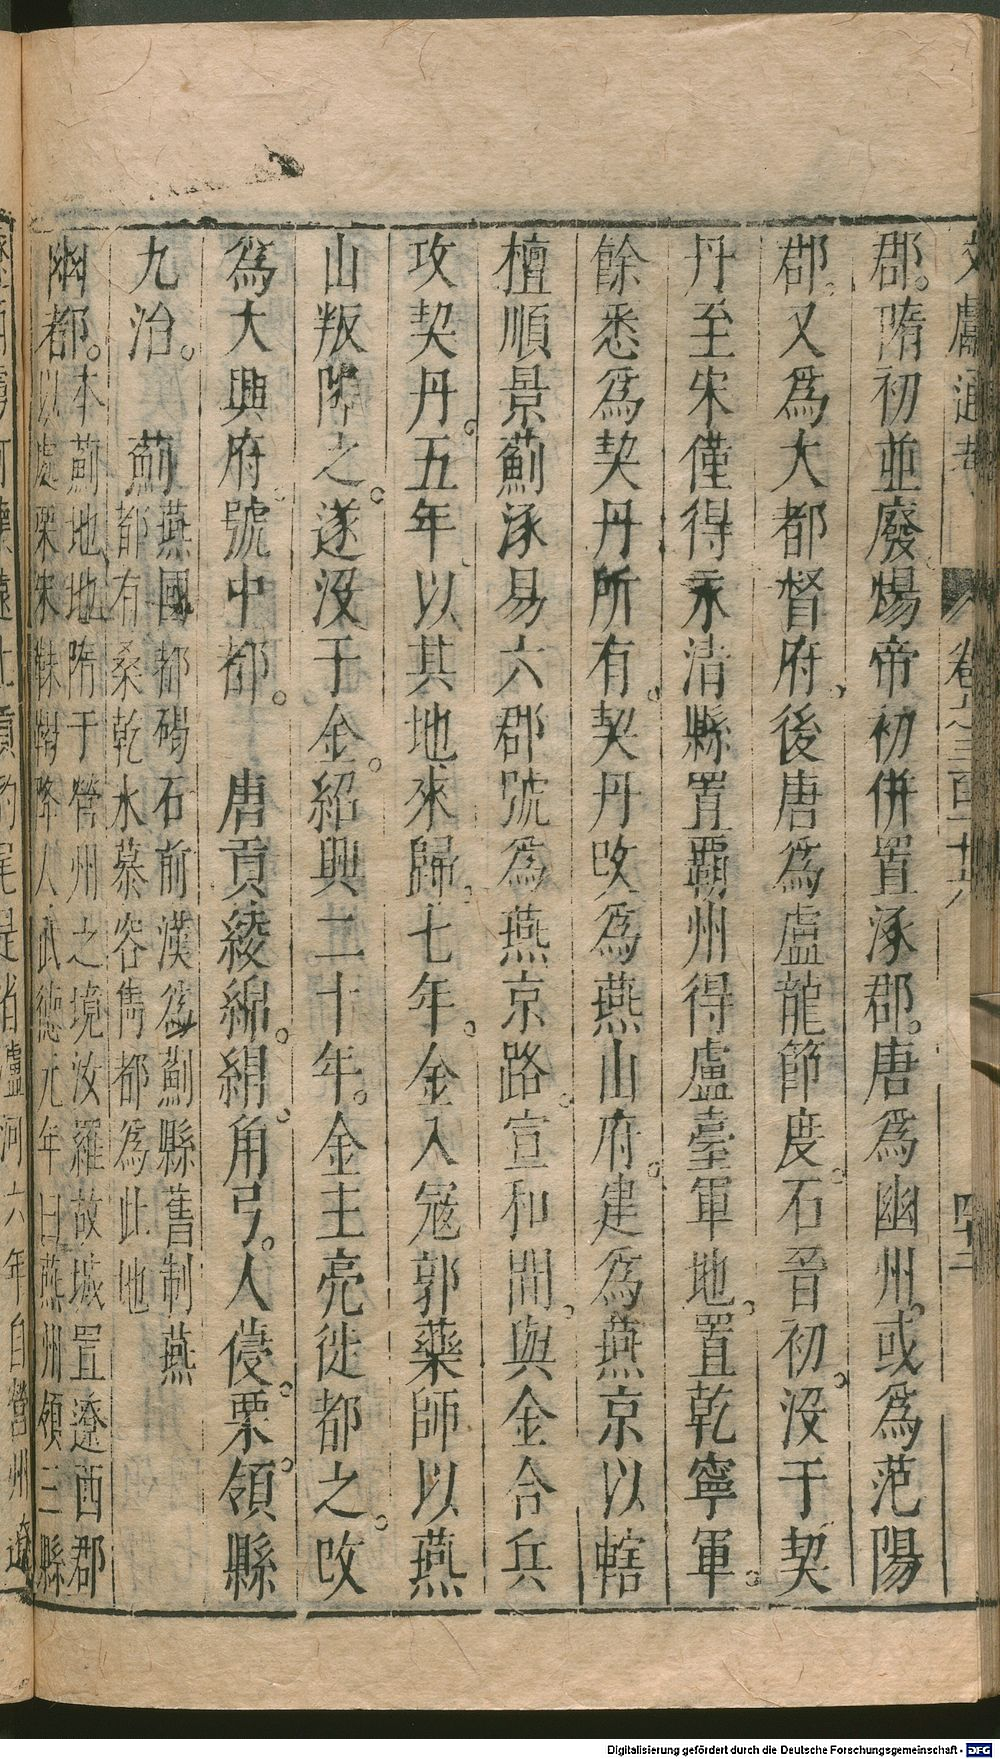 郡。隋初並廢煬帝初併置涿郡。唐為幽州。或為范陽
郡。又為大都督府。後唐為盧龍節度。石晉初。沒于契
丹至宋僅得永清縣置霸州得盧臺軍地。置乾寧軍。
餘悉為契丹所有。契丹改為燕山府。建為燕京以轄
檀順景薊涿易六郡號為燕京路。宣和間。與金合兵
攻契丹。五年。以其地來歸。七年。金入寇郭藥師以燕
山叛降之。遂沒于金。紹興二十年。金主亮徙都之。改
為大興府。號中都。 唐貢綾綿。絹。角弓。人薓。栗。領縣
九治。 薊燕國都碣石前漢為薊縣舊制燕
都有桑乾水慕容雋都為此地
幽都。本薊地地隋于營州之境汝羅故城置遼西郡
以處粟末靺鞨降人武德元年曰燕州領三縣
文獻通考 卷之三百一十六 四十三
Digitalisierung gefördert durch die Deutsche Forschungsgemeinschaft - DFG